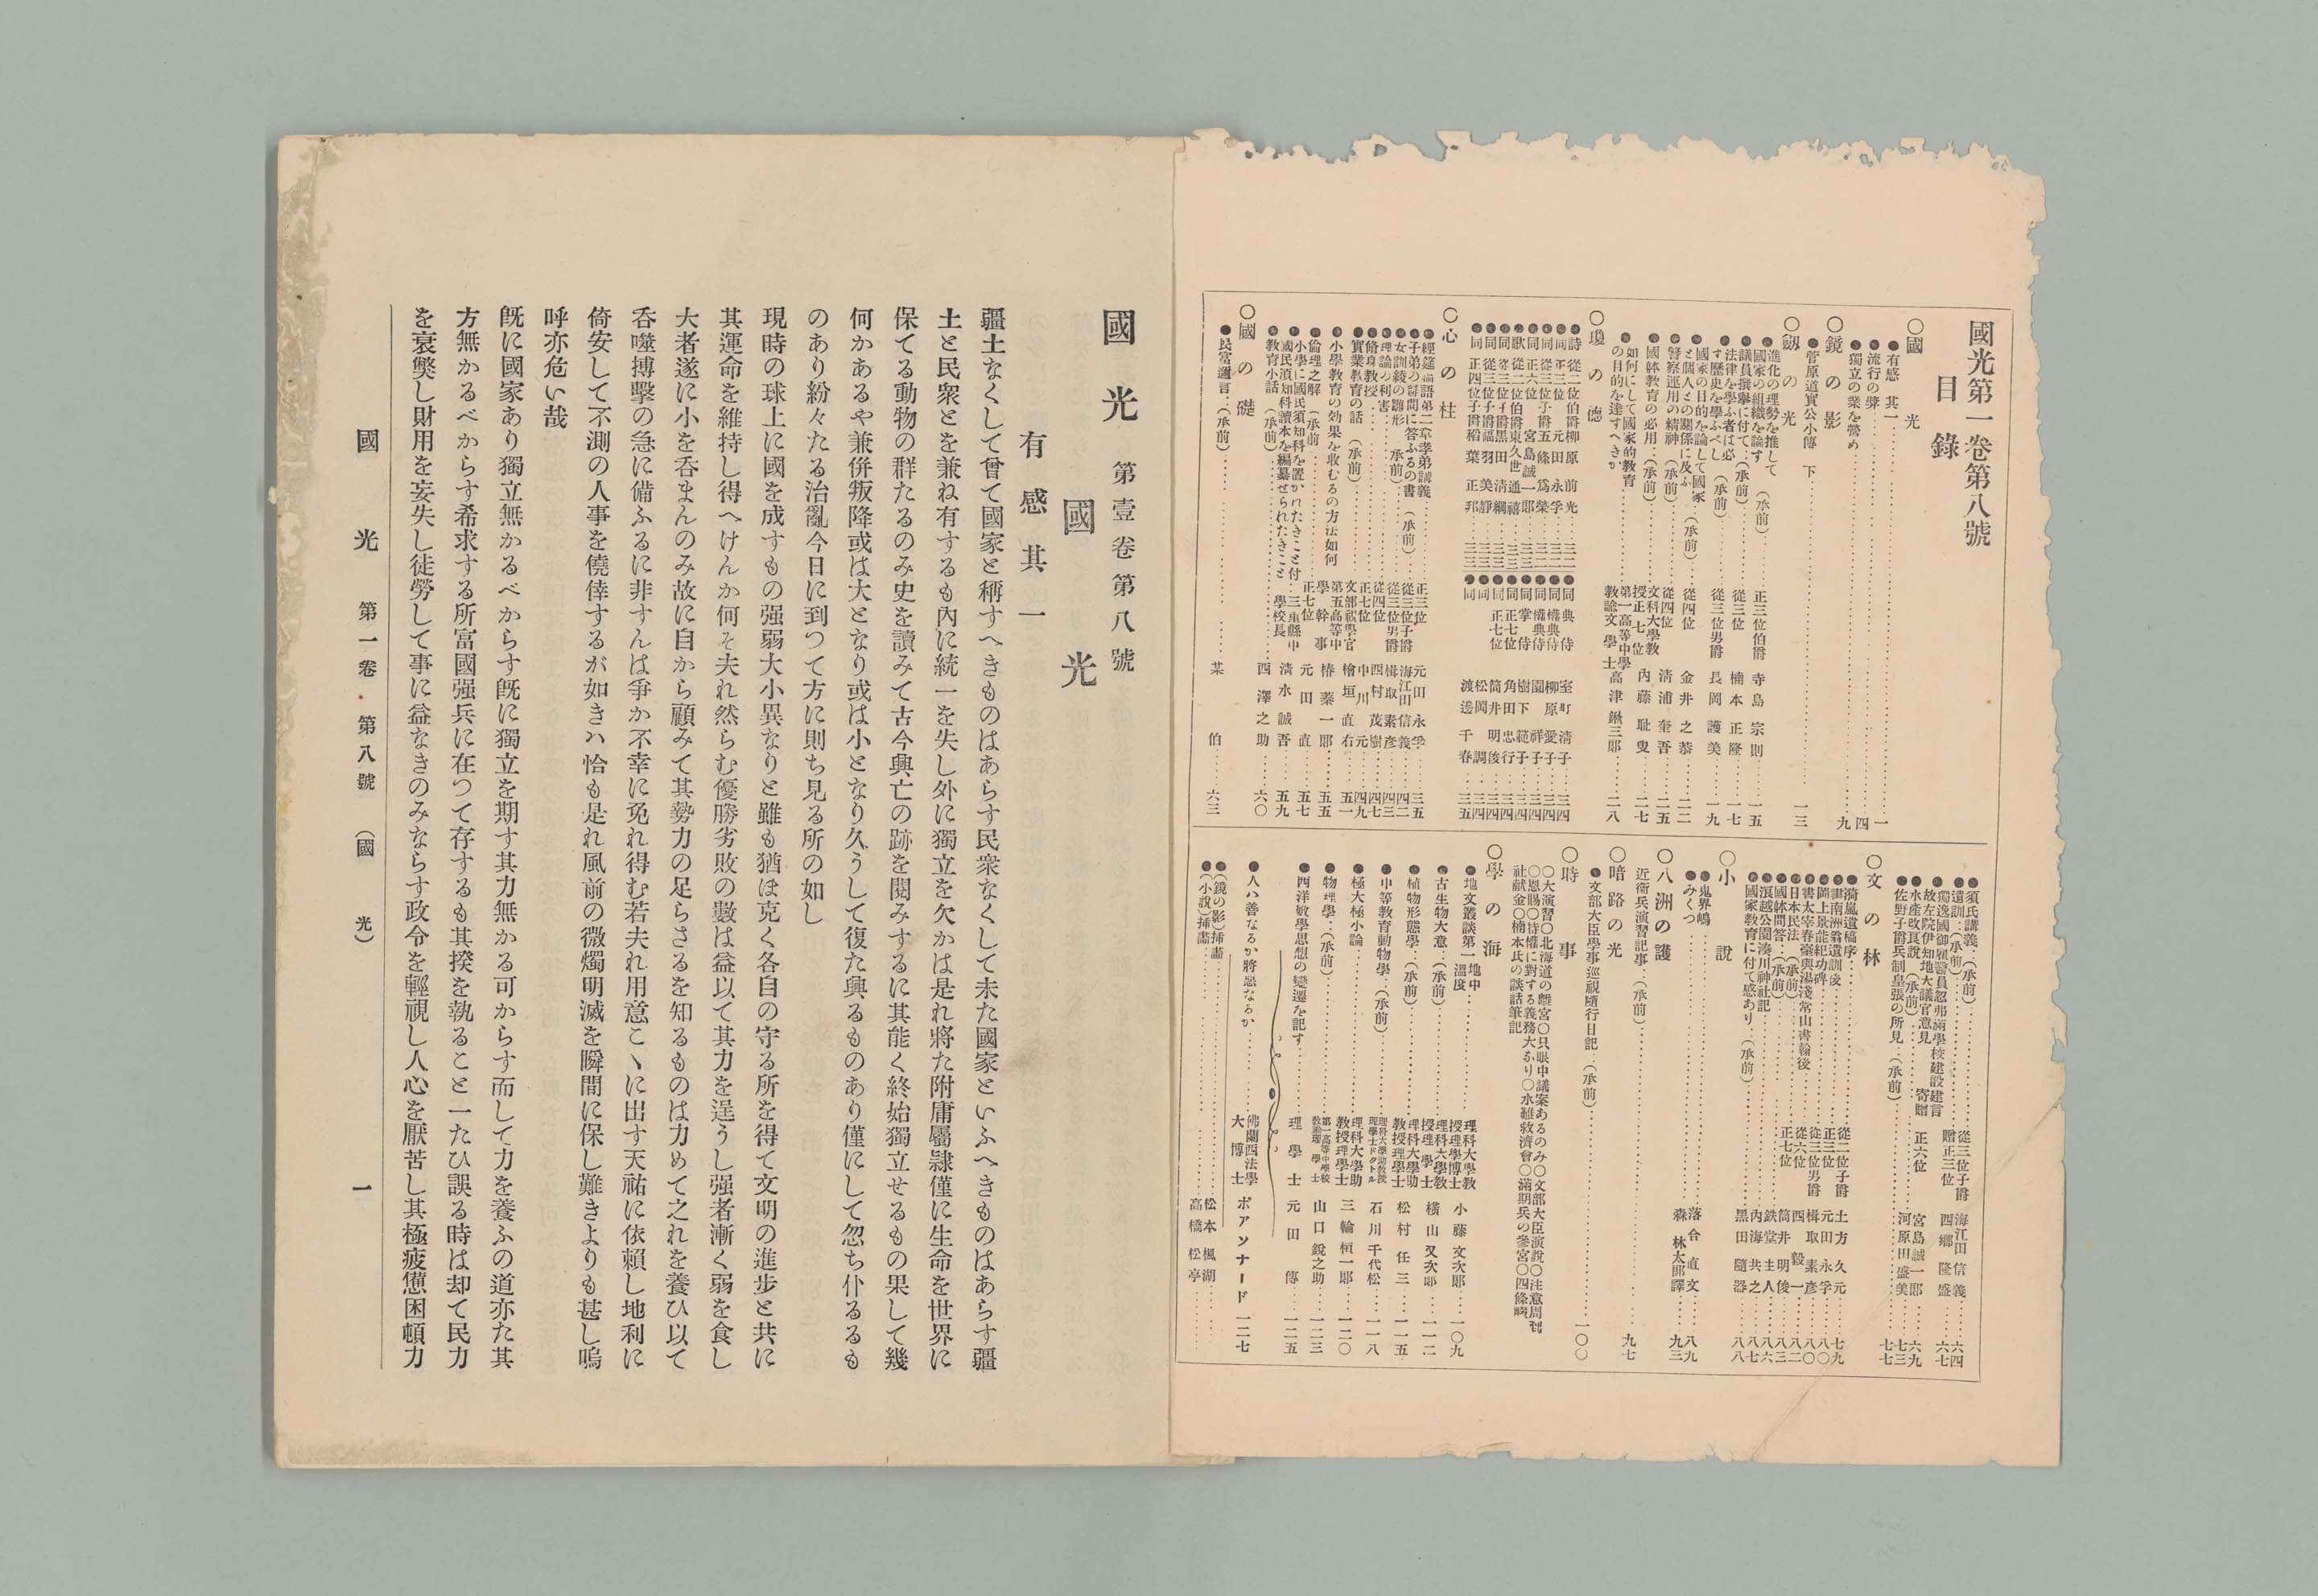 國光第一卷第八號
目錄
○國光
●有感 其一……一
●流行の弊……四
●獨立の業を營め……九
○鏡の影
●菅原道實公小傳 下……一三
○劒の光
●進化の理勢を推して國家の組織を論す(承前)……正三位伯爵 寺島宗則……一五
●議員撰擧に付て(承前)……從三位 楠本正隆……一七
●法律を學ふ者は必す歷史を學ふべし(承前)……從三位男爵 長岡護美……一九
●國家の目的を論して國家と個人との關係に及ふ(承前)……從四位 金井之恭……二二
●警察運用の精神(承前)……從四位 清浦奎吾……二五
●國体教育の必用(承前)……文科大學教授正七位 內藤耻叟……二七
●如何にして國家的教育の目的を達すへきか……第一高等中學教諭文學士 高津鍬三郎……二八
○瓊の德
●詩 從二位伯爵 柳原前光
●同 正三位 元田永孚
●同 從三位子爵 五條爲榮
●同 正六位 宮島誠一郎
●歌 從二位伯爵 東久世通禧
●同 從三位子爵 黑田清綱
●同 從三位子爵 福羽美靜
●同 正四位子爵 稻葉正邦
●同 典侍 室町清子……三四
●同 權典侍 柳原愛子……三四
●同 權典侍 園祥子……三四
●同 掌侍 樹下範子……三四
●同 正七位 角田忠行……三四
●同 正七位 筒井明俊……三四
●同 松岡調……三四
●同 渡邊千春……三五
○心の柱
●經筵論語第二章孝弟講義……正三位 元田永孚……三五
●子弟の疑問に答ふるの書(承前)……從三位子爵 海江田信義……四二
●女訓綾の雛形(承前)……從三位男爵 楫取素彥……四三
●理論の利害……從四位 西村茂樹……四七
●脩身教授……正七位 中川元……四九
●實業教育の話(承前)……文部視學官 檜垣直右……五一
●小學教育の効果を收むるの方法如何……第五高等中學幹事 椿蓁一郎……五五
●倫理之解(承前)……正七位 元田直……五七
●小學に國民須知科を置かれたきこと付國民須知科讀本を編纂せられたきこと……三重縣中學校長 清水誠吾……五九
●教育小話(承前)……西澤之助……六〇
○國の礎
●民富邇言(承前)……某伯……六三
●須氏講義(承前)……從三位子爵 海江田信義……六四
●遺訓(承前)……贈正三位 西鄕隆盛……六七
●獨逸國御雇醫員忽弗滿學校建設建言故左院伊知地大議官意見 寄贈 正六位 宮島誠一郎……六九
●水產改良說(承前)……河原田盛美……七三
●佐野子爵兵制皇張の所見(承前)……七七
○文の林
●漪嵐遺稿序……從二位子爵 土方久元……七九
●書南洲翁遺訓後……正三位 元田永孚……八〇
●岡上景能紀功碑……從三位男爵 楫取素彥……八〇
●書太宰春臺與湯淺常山書翰後……從六位 西毅一……八二
●日本民法(承前)……正七位 筒井明俊……八三
●國体問答(承前)……鉄堂主人……八六
●浪越公園湊川神社記……內海共之……八七
●國家教育に付て感あり(承前)……黑田隨器……八八
○小說
●鬼界嶋……落合直文……八九
●みくつ……森林太郎譯……九三
○八洲の護
近衛兵演習記事(承前)……九七
○暗路の光
●文部大臣學事巡視隨行日記(承前)……一〇〇
○時事
○大演習○北海道の離宮○只眼中議案あるのみ○文部大臣演說○注意周到
○恩賜○特權に對する義務大なり○水難救濟會○滿期兵の參宮○四條畷
社献金○楠本氏の談話筆記
○學の海
●地文叢談第一 地中溫度……理科大學教授理學博士 小藤文次郎……一〇九
●古生物大意(承前)……理科大學教授理學士 橫山又次郎……一一二
●植物形態學(承前)……理科大學助教授理學士 松村任三……一一五
●中等教育動物學(承前)……理科大學助教授理學士ドクトル 石川千代松……一一八
●極大極小論……理科大學助教授理學士 三輪桓一郎……一二〇
●物理學(承前)……第一高等中學校教諭理學士 山口銳之助……一二三
●西洋數學思想の變遷を記す……理學士 元田傳……一二五
●人ハ善なるか將惡なるか……佛蘭西法學大博士 ボアソナード 一二七
●(鏡の影)挿畵……松本楓湖
●(小說)挿畵……高橋松亭
國光 第壹卷第八號
國光
有感 其一
疆土なくして曾て國家と稱すへきものはあらす民衆なくして未た國家といふへきものはあらす疆
土と民衆とを兼ね有するも內に統一を失し外に獨立を欠かは是れ將た附庸屬隷僅に生命を世界に
保てる動物の群たるのみ史を讀みて古今興亡の跡を閱みするに其能く終始獨立せるもの果して幾
何かあるや兼併叛降或は大となり或は小となり久うして復た興るものあり僅にして忽ち仆るるも
のあり紛々たる治亂今日に到つて方に則ち見る所の如し
現時の球上に國を成すもの强弱大小異なりと雖も猶ほ克く各自の守る所を得て文明の進步と共に
其運命を維持し得へけんか何そ夫れ然らむ優勝劣敗の數は益以て其力を逞うし强者漸く弱を食し
大者遂に小を呑まんのみ故に自から顧みて其勢力の足らさるを知るものは力めて之れを養ひ以て
呑噬搏擊の急に備ふるに非すんは爭か不幸に免れ得む若夫れ用意こゝに出す天祐に依賴し地利に
倚安して不測の人事を僥倖するが如きハ恰も是れ風前の微燭明滅を瞬間に保し難きよりも甚し嗚
呼亦危い哉
旣に國家あり獨立無かるべからす旣に獨立を期す其力無かる可からす而して力を養ふの道亦た其
方無かるべからす希求する所富國强兵に在つて存するも其揆を執ること一たひ誤る時は却て民力
を衰獘し財用を妄失し徒勞して事に益なきのみならす政令を輕視し人心を厭苦し其極疲憊困頓力
國光 第一卷 第八號 (國光) 一